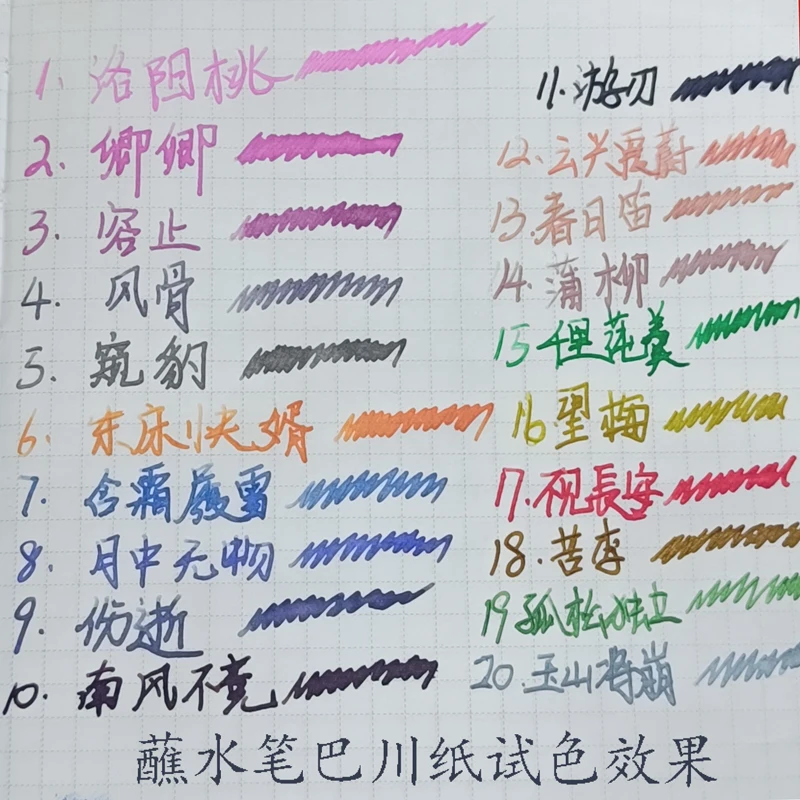 1. 洛阳桃
2. 卿卿
3. 容止
4. 风骨
5. 窥豹
6. 东床快婿
7. 含霜履雪
8. 月中无物
9. 伤逝
10. 南风不竞
11. 游刃
12. 云兴霞蔚
13. 春日笛
14. 蒲柳
15 千里莼羹
16 望梅
17. 不见長安
18. 苦李
19 孤松独立
20. 玉山将崩
蘸水笔巴川纸试色效果